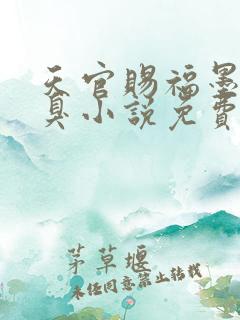 天官赐福墨
真小说免费
茅草堰
未经同意禁止转载